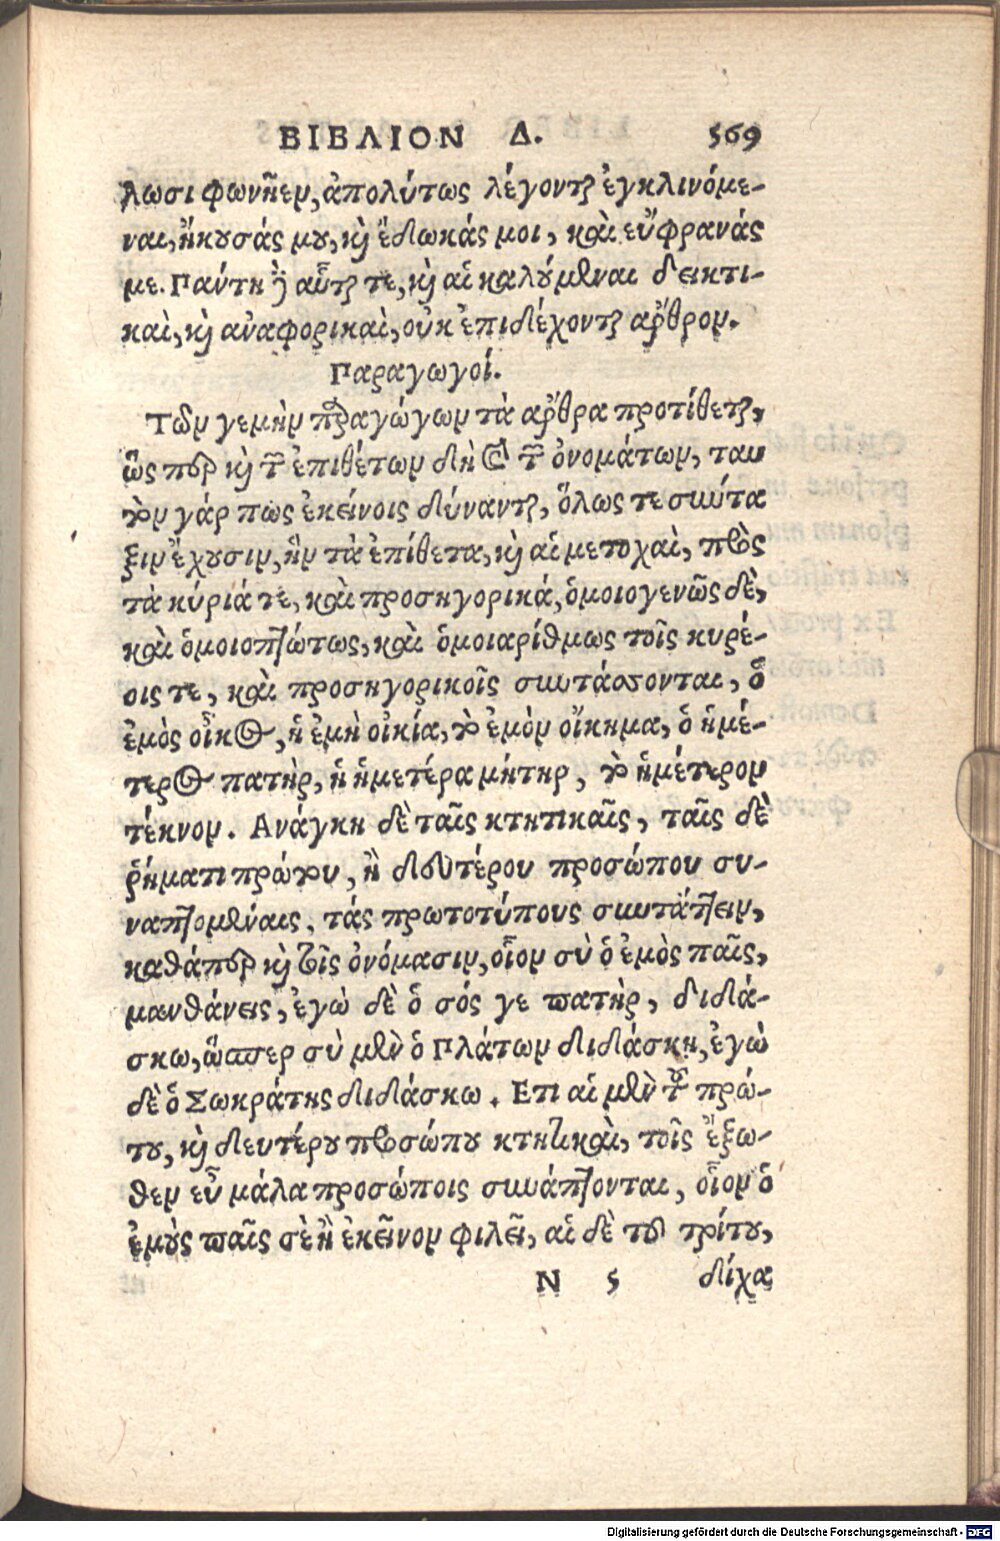 ΒΙΒΛΙΟΝ Δ. 569
λωσι φωνῆεν, ἀπολύτως λέγονται ἐγκλινόμε-
ναι, ἤκουσάς μου, καὶ ἔδωκάς μοι, καὶ εὔφρανάς
με. Πάντη δὲ αὗταί τε, καὶ αἱ καλούμεναι δεικτι-
καὶ, καὶ ἀναφορικαὶ, οὐκ ἐπιδέχονται ἄρθρον.
Παραγωγοί.
Τῶν γεμὴν παραγώγων τὰ ἄρθρα προτίθεται,
ὥς περ καὶ τῶν ἐπιθέτων δὴ καὶ τῶν ὀνομάτων, ταυ
τὸν γάρ πως ἐκείνοις δύνανται, ὅλως τε σύντα
ξιν ἔχουσιν, ἣν τὰ ἐπίθετα, καὶ αἱ μετοχαὶ, πρὸς
τὰ κύριά τε, καὶ προσηγορικά, ὁμοιογενῶς δὲ,
καὶ ὁμοιοπτώτως, καὶ ὁμοιαρίθμως τοῖς κυρί-
οις τε, καὶ προσηγορικοῖς συντάσσονται, ὁ
ἐμὸς οἶκος, ἡ ἐμὴ οἰκία, τὸ ἐμὸν οἴκημα, ὁ ἡμέ-
τερος πατὴρ, ἡ ἡμετέρα μήτηρ, τὸ ἡμέτερον
τέκνον. Ανάγκη δὲ ταῖς κτητικαῖς, ταῖς δὲ
ῥήματι πρώτου, ἢ δευτέρου προσώπου συ-
ναπτομέναις, τάς πρωτοτύπους συντάττειν,
καθάπερ καὶ τοῖς ὀνόμασιν, οἷον σὺ ὁ ἐμὸς παῖς,
μανθάνεις, ἐγὼ δὲ ὁ σός γε πατὴρ, διδά-
σκω, ὥσπερ σὺ μὲν ὁ Πλάτων διδάσκῃ, ἐγὼ
δὲ ὁ Σωκράτης διδάσκω. Ετι αἱ μὲν τοῦ πρώ-
του, καὶ δευτέρου προσώπου κτητικαὶ, τοῖς ἔξω-
θεν εὖ μάλα προσώποις συνάπτονται, οἷον ὁ
ἐμὸς παῖς σὲ ἢ ἐκεῖνον φιλεῖ, αἱ δὲ τοῦ τρίτου,
Ν 5 δίχα
Digitalisierung gefördert durch die Deutsche Forschungsgemeinschaft - DFG